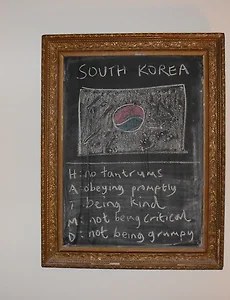 SOUTH KOREA
H: no tantrums
A: obeying promptly
T: being kind
M: not being critical
D: not being grumpy